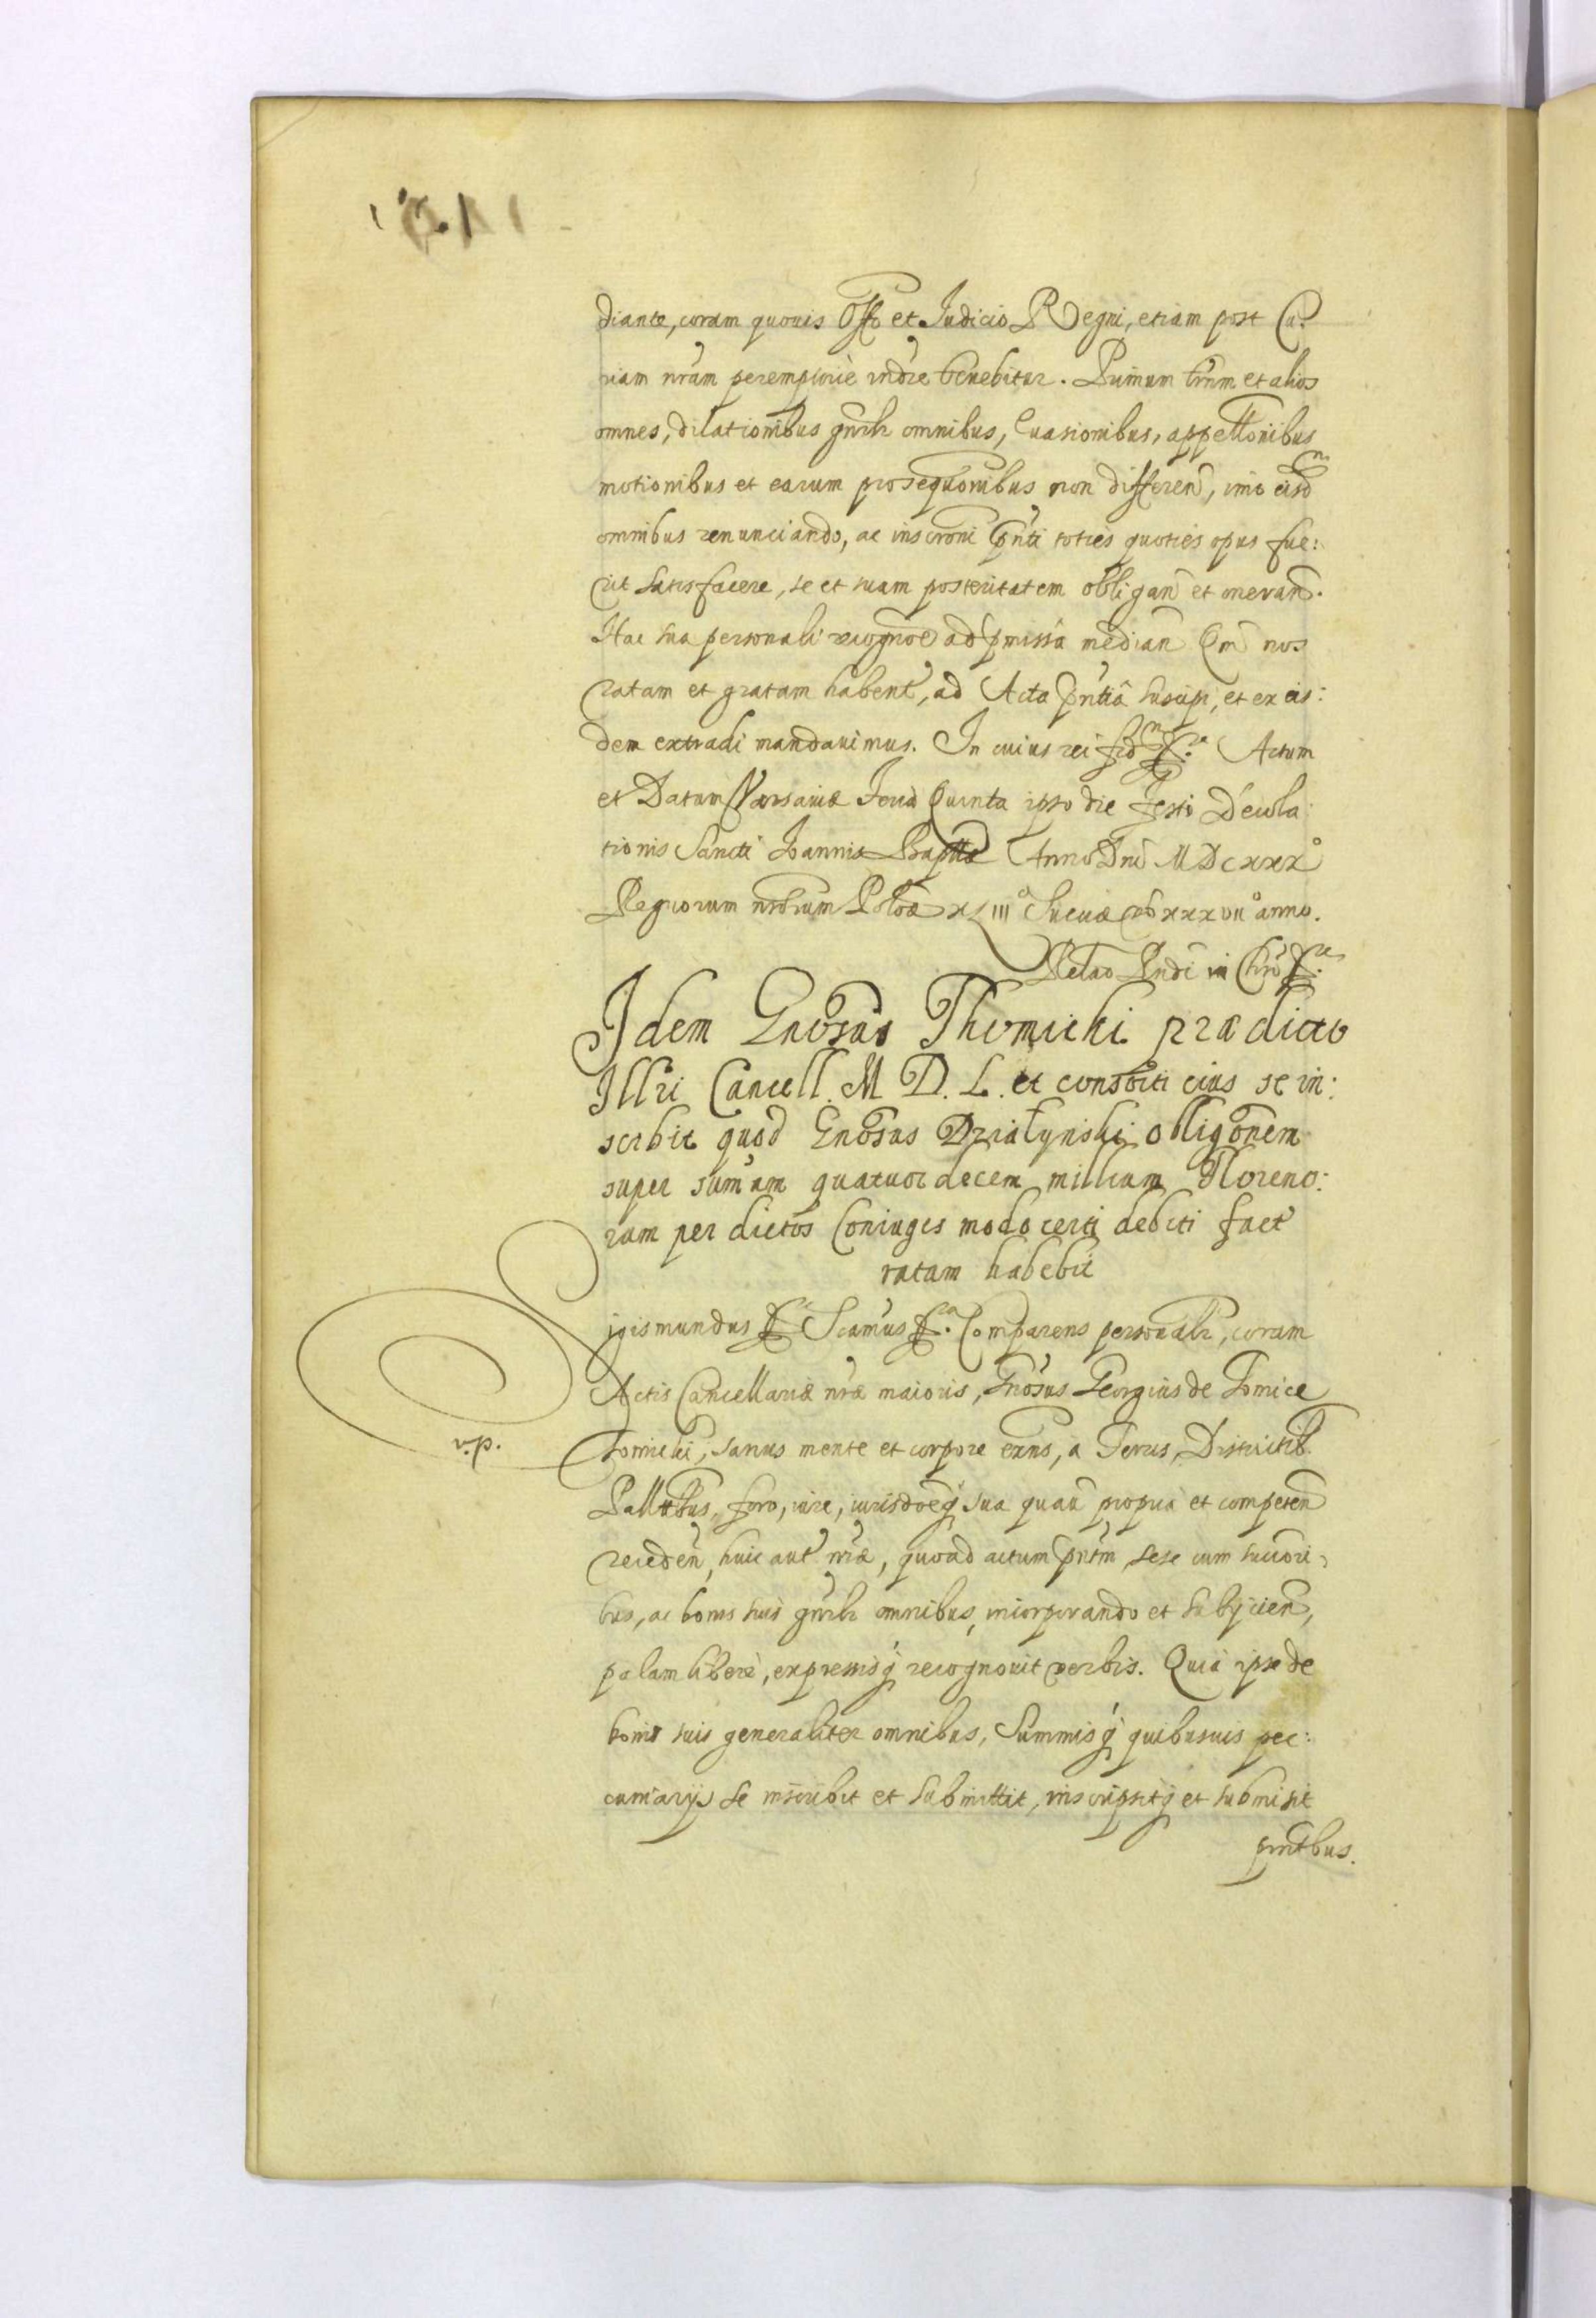 diante, coram quouis Offo et Judicio Regni, etiam post Cu:
riam nram peremptorie rndre tenebitur. Primum trnm et alios
omnes, dilationibus gnrlr omnibus, Euasionibus, appellonibus
motionibus et earum prosequonibus non differen, imo eisd
omnibus renunciando, ac inscroni pnti toties quoties opus fue:
rit satisfacere, se et suam posteritatem obligan et oneran.
Hac sua personali recognoe ad pmissa median Qm nos
ratam et gratam habent, ad Acta pntia suscipi, et ex eis:
dem extradi mandauimus. In cuius rei fid Actum
et Datum Varsauiæ Feria Quinta ipso die Festi Decola
tionis Sancti Joannis Baptæ Anno Dni MDCXXX°
Regnorum nrorum Polæ XLIII° Sueciæ XXXVII° anno.
Relao Rndi in Chro
Idem Gnosus Thomicki prædicto
Illri Cancell. M D. L. et consorti eius se in:
scrbit quod Gnosus Działynski obligonem
super sumam quatuordecem millium Floreno:
rum per dictos Coniuges modo certi debiti fact
ratam habebit
igismundus Scamus Comparens personalr, coram
Actis Cancellariæ nræ maioris, Gnosus Georgius de Tomice
v.p. Tomicki, sanus mente et corpore exns, a Terris, Districtib.
Pallatbus, foro, iure, iurisdoeq sua quau propria et competen
receden, huic aut nræ, quoad actum pntm sese cum succori
bus, ac bonis suis gnrlr omnibus, incorporando et subijcien,
palam libere, expressisq recognouit verbis. Quia ipse de
bonis suis generaliter omnibus, Summisq quibusuis pec:
cuniarijs se inscribit et submittit, inscripsitq et submisit
pntbus.